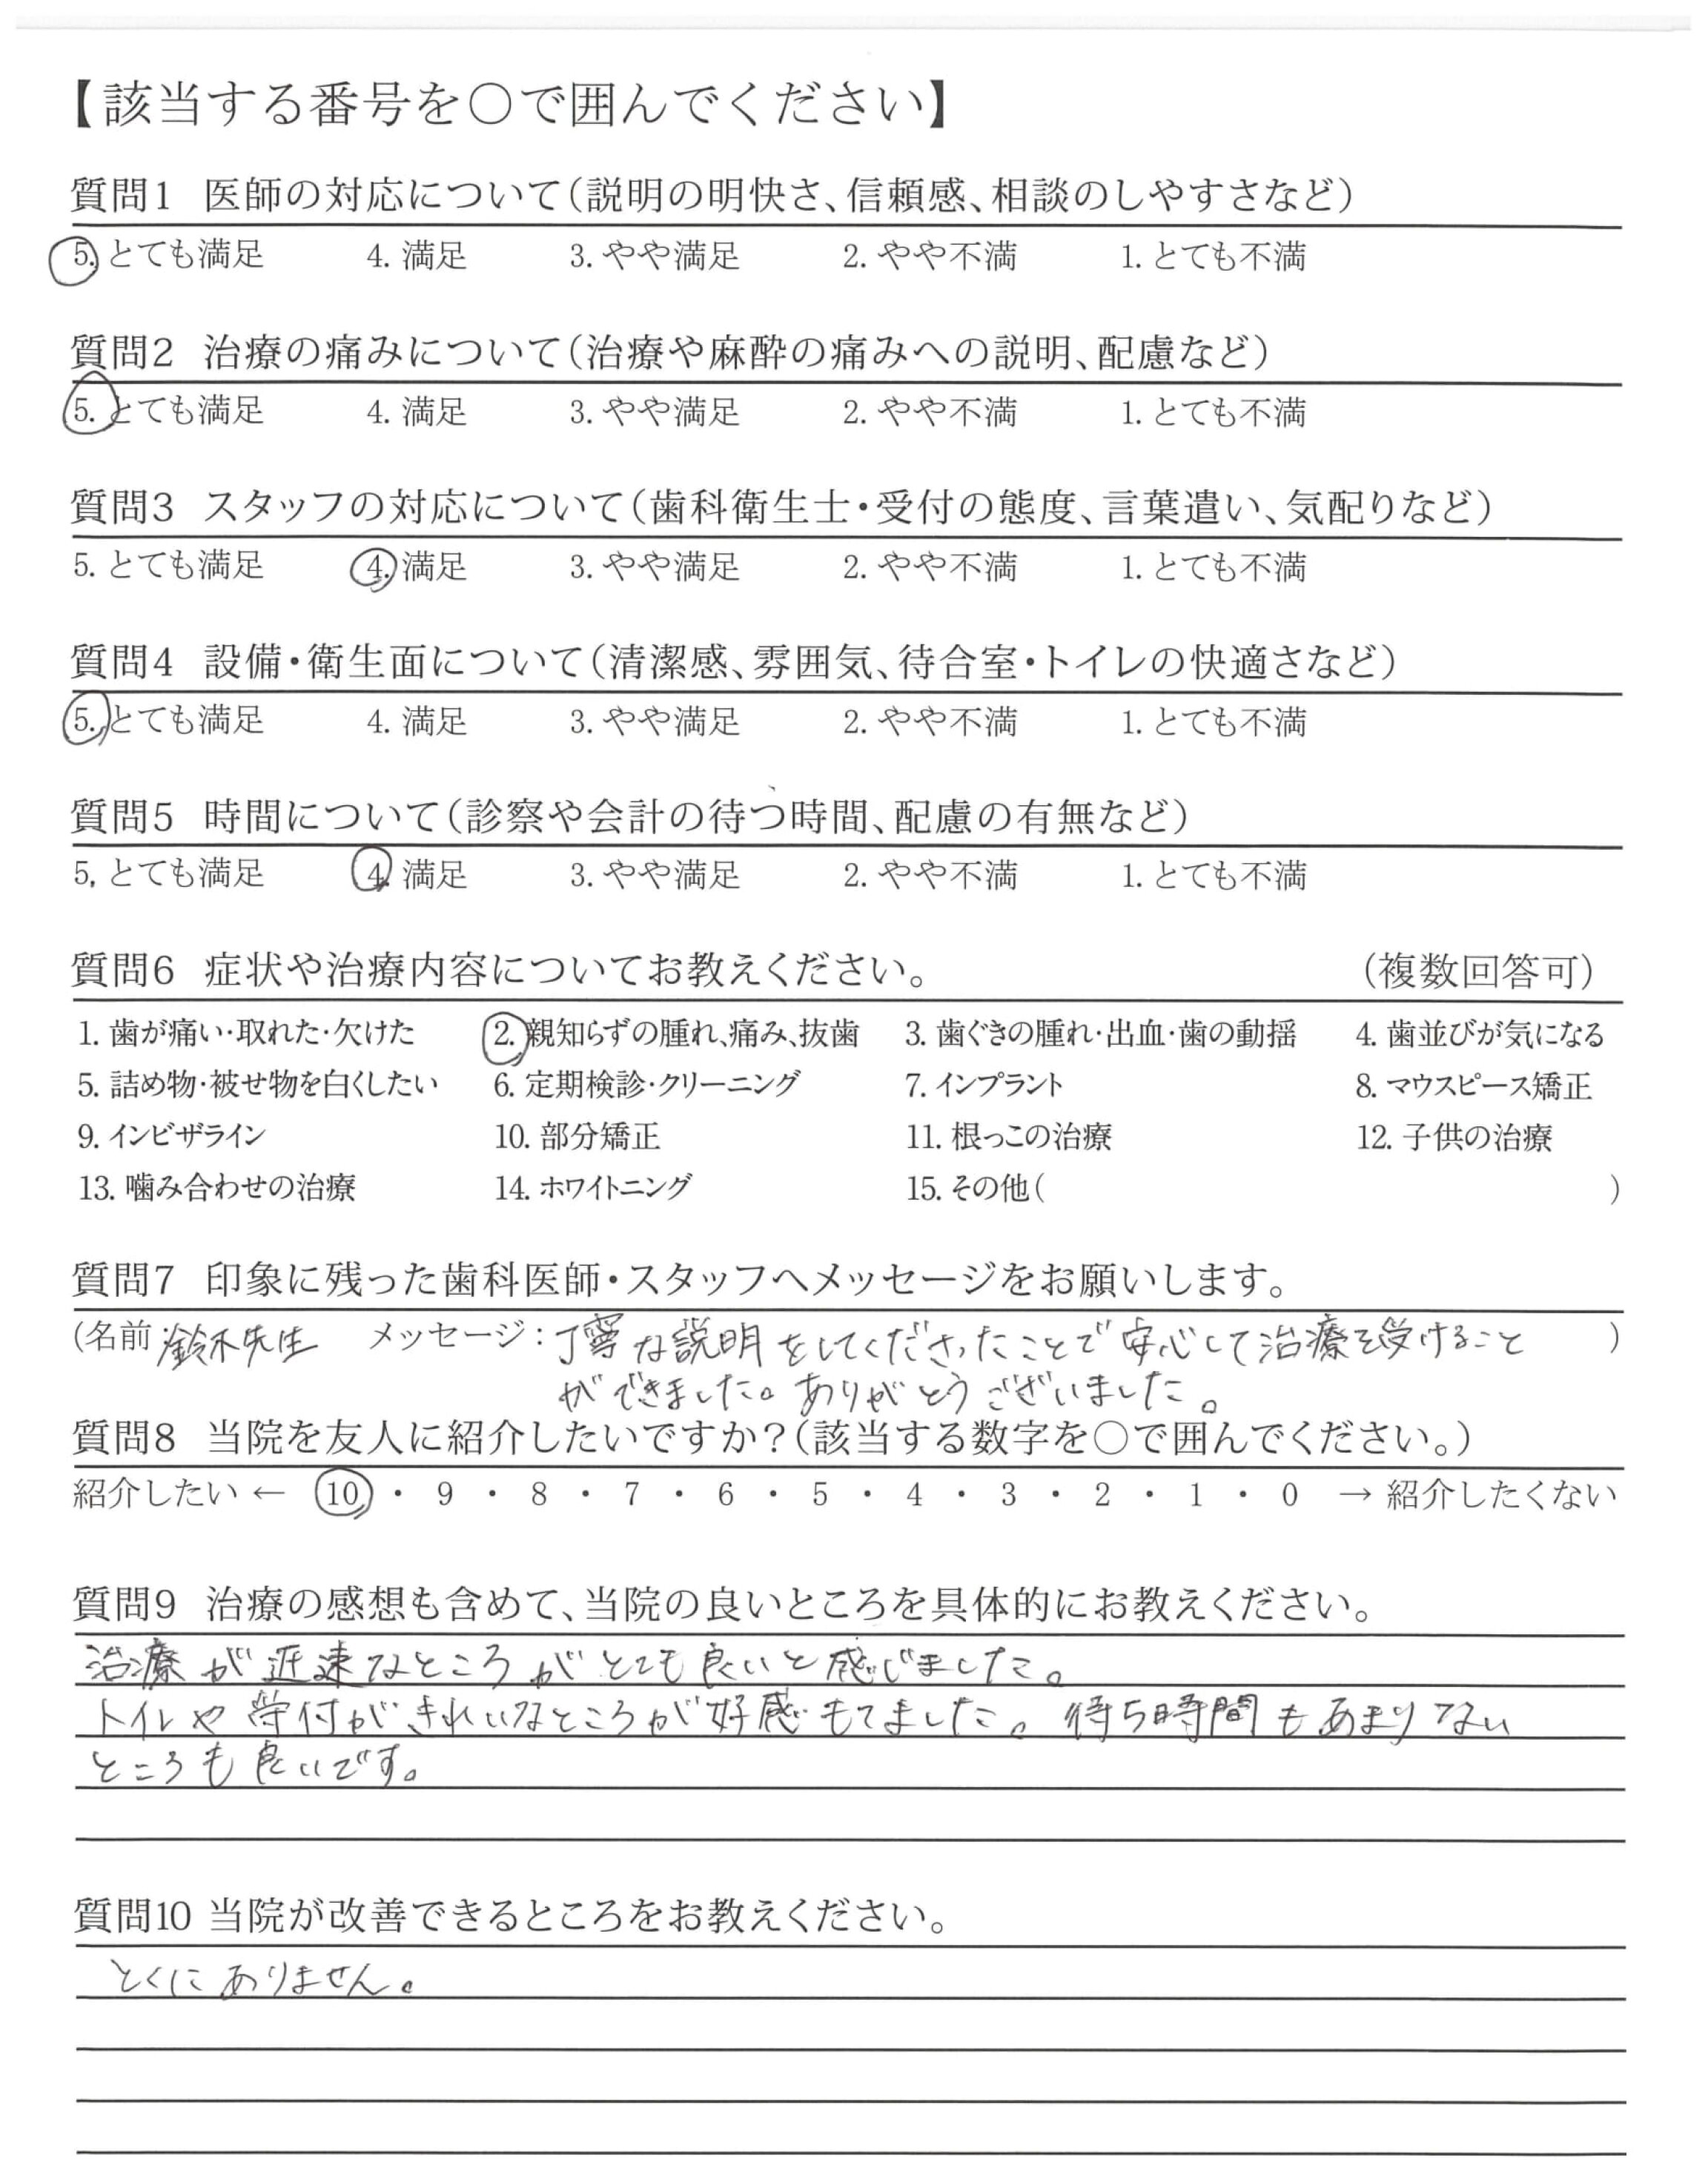 【該当する番号を〇で囲んでください】
質問1 医師の対応について(説明の明快さ、信頼感、相談のしやすさなど)
5. とても満足 4. 満足 3. やや満足 2. やや不満 1. とても不満
質問2 治療の痛みについて(治療や麻酔の痛みへの説明、配慮など)
5. とても満足 4. 満足 3. やや満足 2. やや不満 1. とても不満
質問3 スタッフの対応について(歯科衛生士・受付の態度、言葉遣い、気配りなど)
5. とても満足 4. 満足 3. やや満足 2. やや不満 1. とても不満
質問4 設備・衛生面について(清潔感、雰囲気、待合室・トイレの快適さなど)
5. とても満足 4. 満足 3. やや満足 2. やや不満 1. とても不満
質問5 時間について(診察や会計の待つ時間、配慮の有無など)
5, とても満足 4. 満足 3. やや満足 2. やや不満 1. とても不満
質問6 症状や治療内容についてお教えください。 (複数回答可)
1. 歯が痛い・取れた・欠けた 2. 親知らずの腫れ、痛み、抜歯 3. 歯ぐきの腫れ・出血・歯の動揺 4. 歯並びが気になる
5. 詰め物・被せ物を白くしたい 6. 定期検診・クリーニング 7. インプラント 8. マウスピース矯正
9. インビザライン 10. 部分矯正 11. 根っこの治療 12. 子供の治療
13. 噛み合わせの治療 14. ホワイトニング 15. その他( )
質問7 印象に残った歯科医師・スタッフへメッセージをお願いします。
(名前 鈴木先生 メッセージ:丁寧な説明をしてくださったことで安心して治療を受けること )
ができました。ありがとうございました。
質問8 当院を友人に紹介したいですか?(該当する数字を〇で囲んでください。)
紹介したい ← 10 ・ 9 ・ 8 ・ 7 ・ 6 ・ 5 ・ 4 ・ 3 ・ 2 ・ 1 ・ 0 → 紹介したくない
質問9 治療の感想も含めて、当院の良いところを具体的にお教えください。
治療が速なところがとても良いと感じました。
トイレや受付がきれいなところが好感もてました。待ち時間もあまりない
ところも良いです。
質問10 当院が改善できるところをお教えください。
とくにありません。